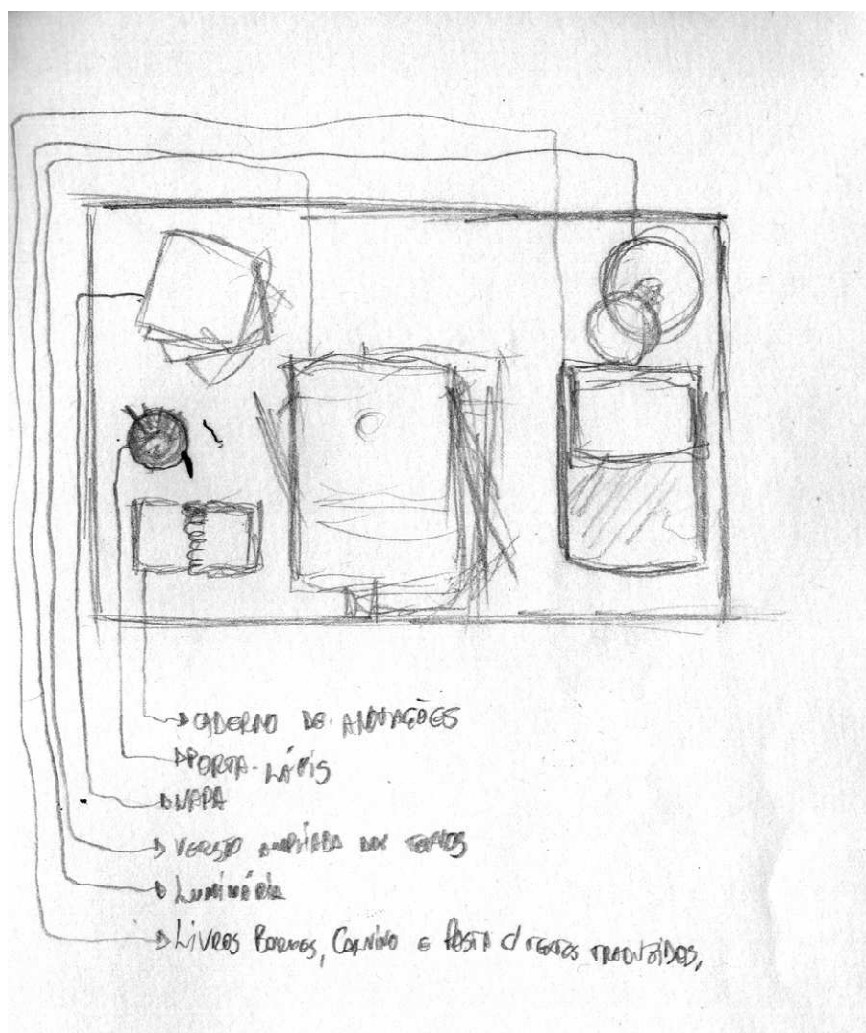 CADERNO DE ANOTAÇÕES
PORTA-LÁPIS
MAPA
VERSÃO AMPLIADA DOS TEXTOS
LUMINÁRIA
LIVROS BORGES, CALVINO E PASTA C/ TEXTOS TRADUZIDOS,